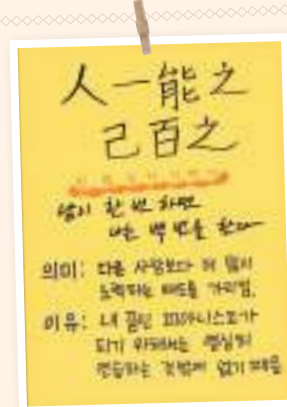 人一能之
己百之
남이 한 번 하면
나는 백 번을 한다
의미: 다른 사람보다 더 많이
노력하는 태도를 가리킴.
이유: 내 꿈인 피아니스트가
되기 위해서는 열심히
연습하는 것밖에 없기 때문